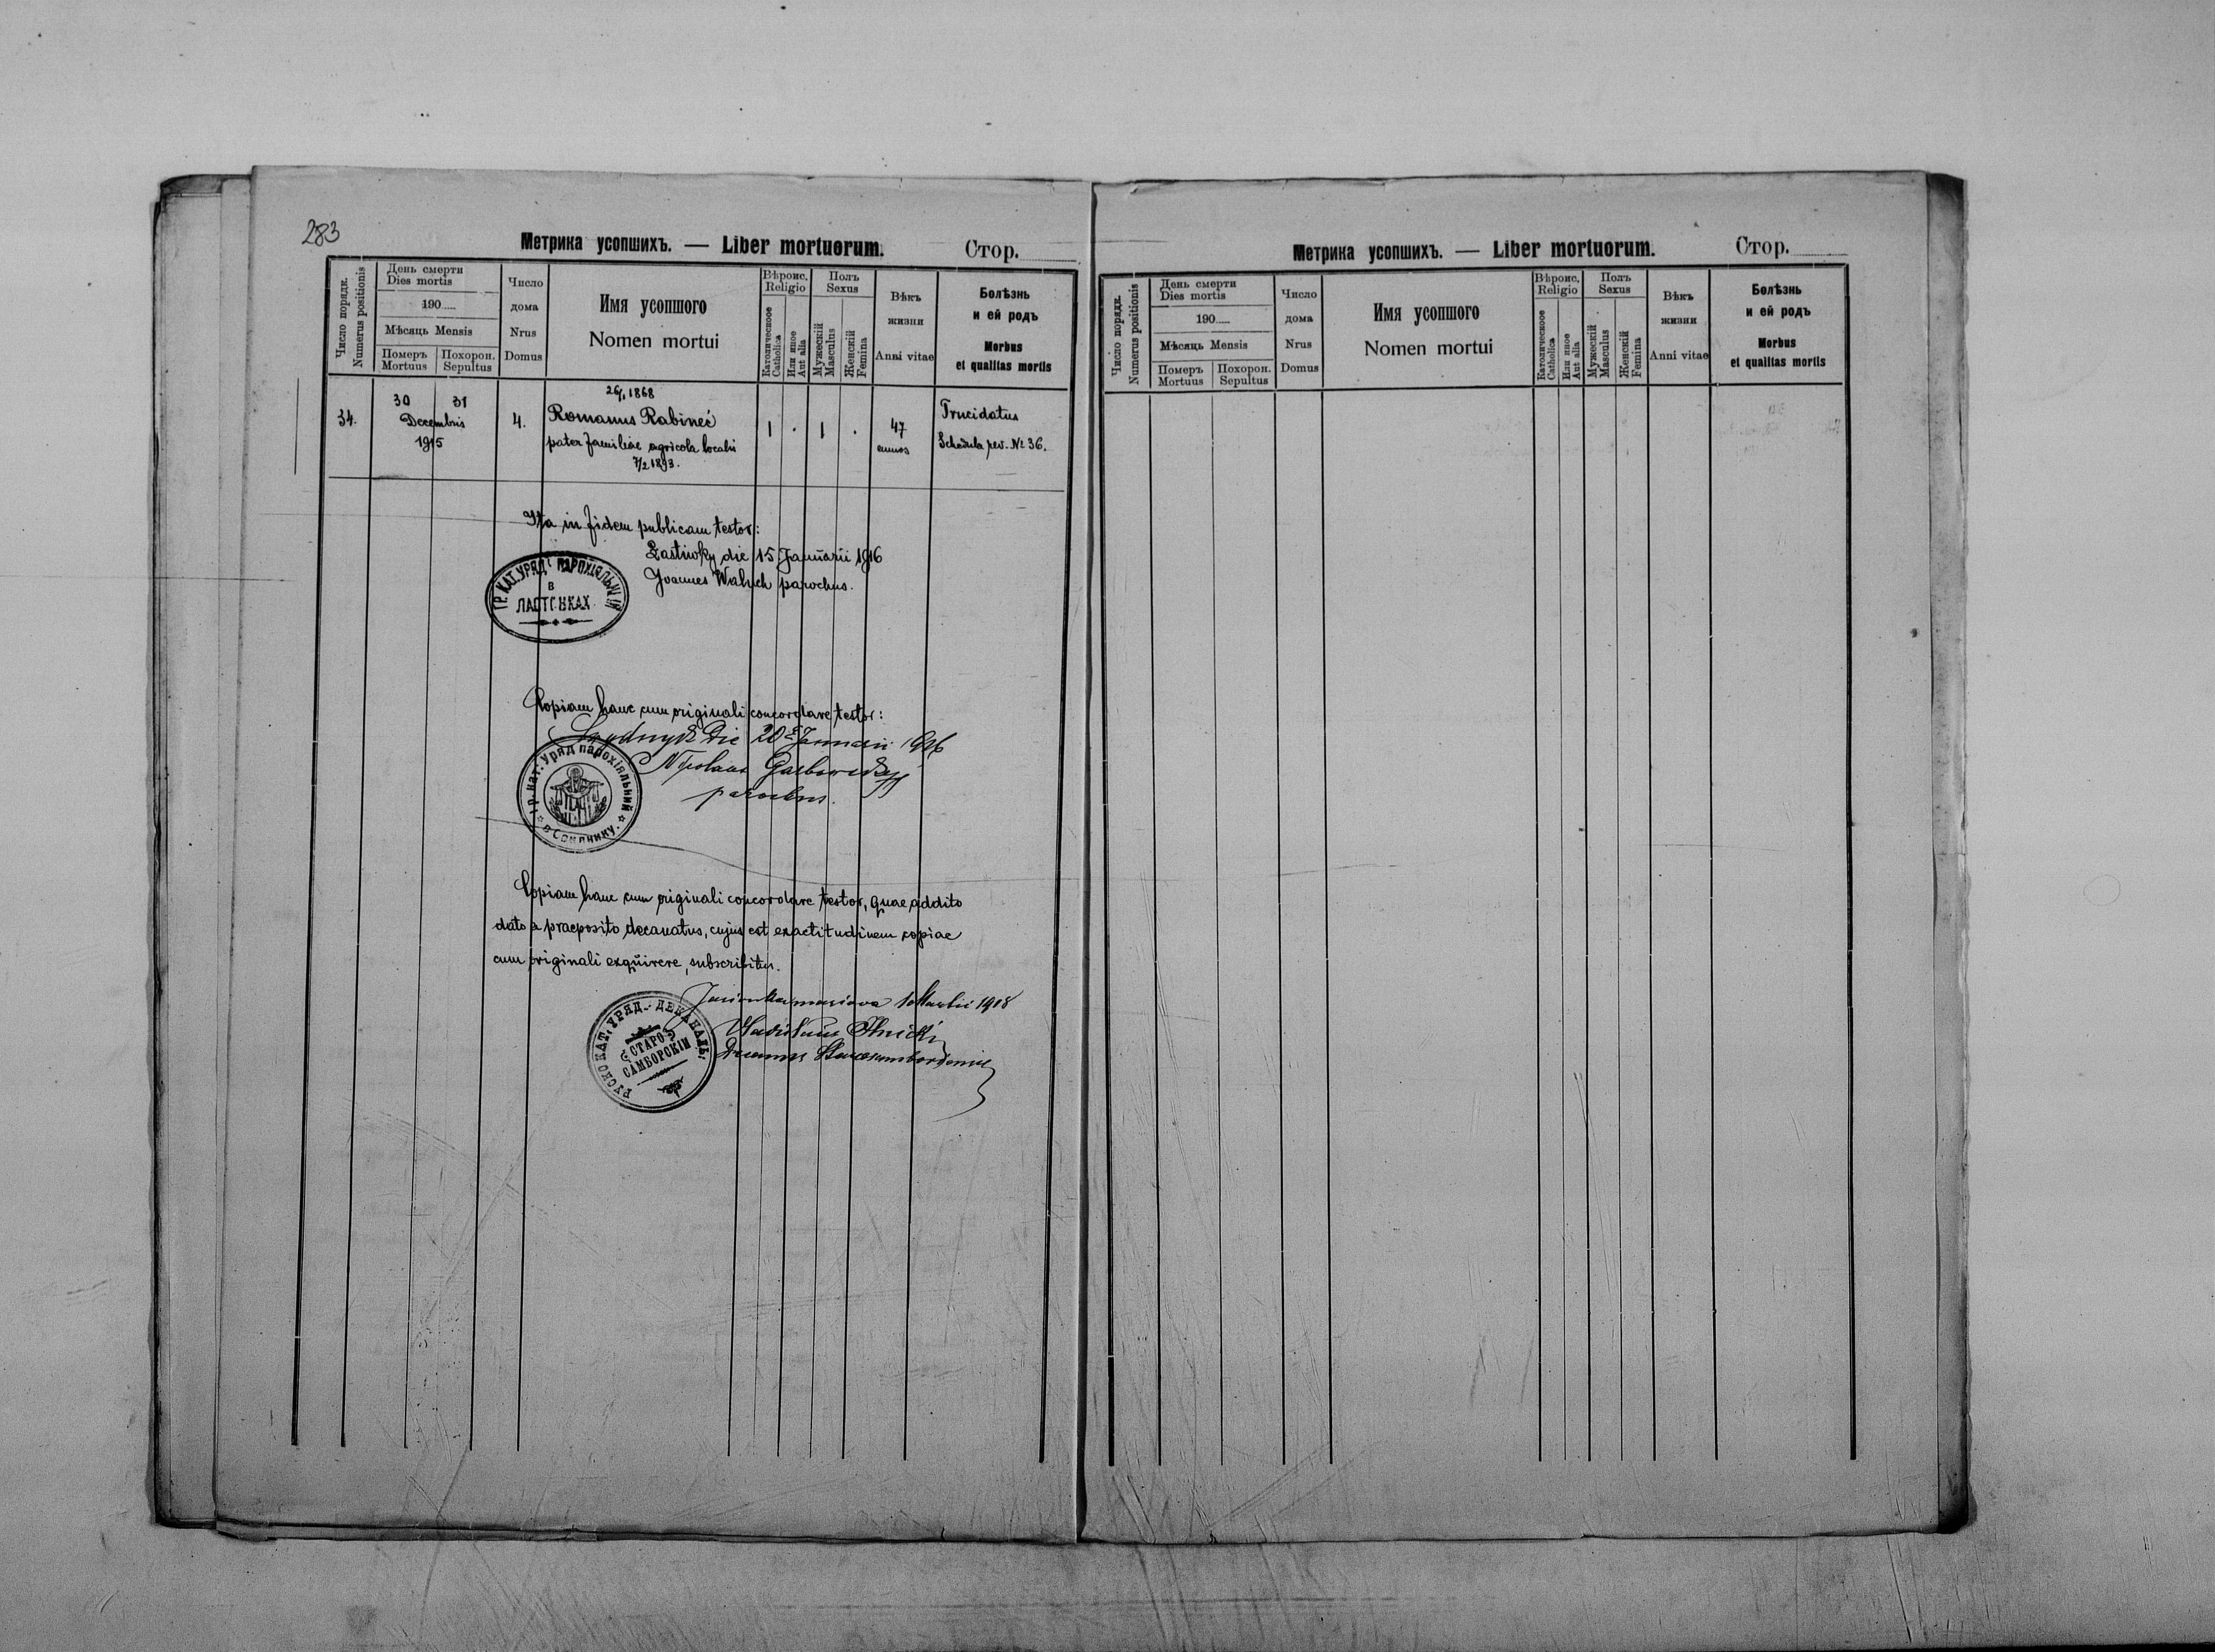 283
Метрика усопшихъ. — Liber mortuorum.
Стор.
Число порядк.
Numerus positionis
День смерти
Dies mortis
190
Мѣсяць Mensis
Померъ
Mortuus
Похорон.
Sepultus
Число
дома
Nrus
Domus
Имя усопшого
Nomen mortui
Вѣроис.
Religio
Католическое
Catholica
Или иное
Aut alia
Полъ
Sexus
Мужескій
Masculus
Женскій
Femina
Вѣкъ
жизни
Anni vitae
Болѣзнь
и ей родъ
Morbus
et qualitas mortis
34.
30 31
Decembris
1915
4.
26/1 1868
Romanus Rabineć
pater familiae agricola localis
7/2 1893.
1 . 1 .
47
annos
Trucidatus
Schedula rev. № 36.
Ita in fidem publicam testor:
Łastiwky die 15 Januarii 1916
Joannes Waluch parochus.
ГР. КАТ. УРЯД ПАРОХІЯЛЬНИЙ
В
ЛАСТІВКАХ
Copiam hanc cum originali concordare testor:
die 20 Januarii 1916
parochus.
гр. кат. Уряд парохіяльний
Copiam hanc cum originali concordare testor, quae addito
dato a praeposito decanatus, cujus est exactitudinem copiae
cum originali exquirere, subscribitur.
1 Martii 1918
РУСКО КАТ. УРЯД. ДЕКАНАЛЬ.
СТАРО-
САМБОРСКІЙ
Метрика усопшихъ. — Liber mortuorum.
Стор.
Число порядк.
Numerus positionis
День смерти
Dies mortis
190
Мѣсяць Mensis
Померъ
Mortuus
Похорон.
Sepultus
Число
дома
Nrus
Domus
Имя усопшого
Nomen mortui
Вѣроис.
Religio
Католическое
Catholica
Или иное
Aut alia
Полъ
Sexus
Мужескій
Masculus
Женскій
Femina
Вѣкъ
жизни
Anni vitae
Болѣзнь
и ей родъ
Morbus
et qualitas mortis